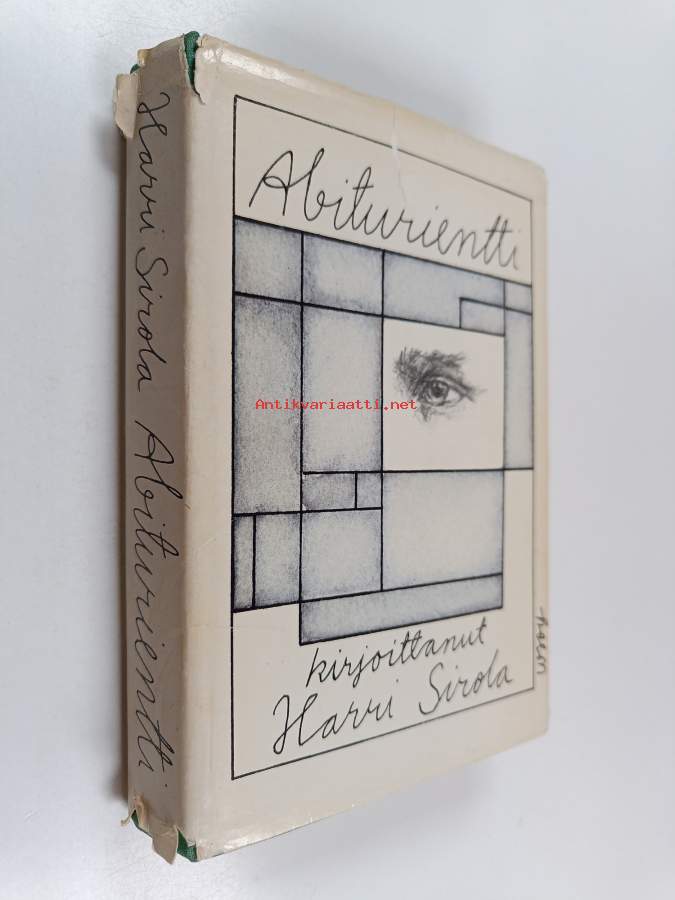 Harri Sirola Abiturientti
Abiturientti
Antikvariaatti.net
kirjoittanut
Harri Sirola